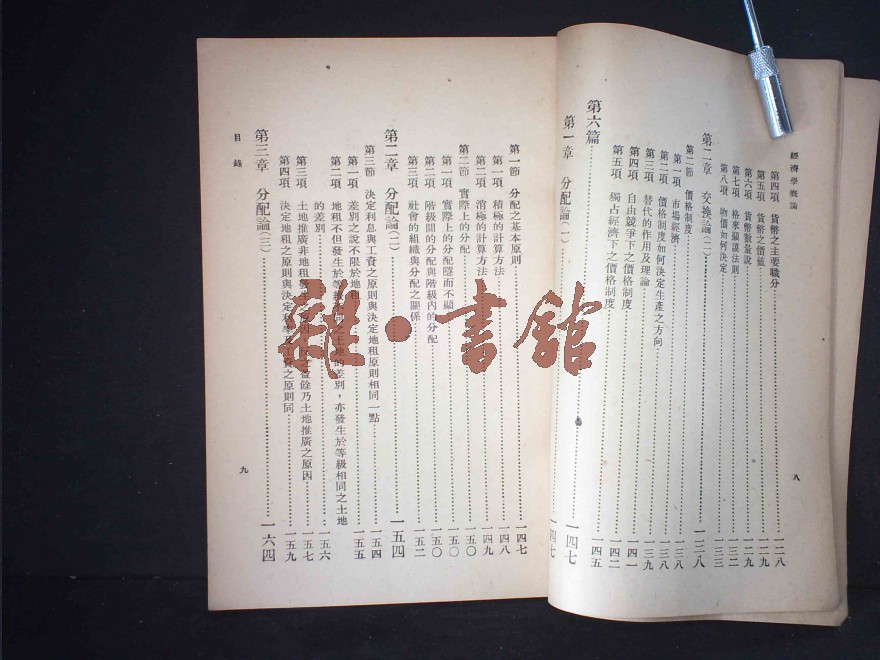 經濟學概論
第四項 貨幣之主要職分 一二八
第五項 貨幣之價値 一二九
第六項 貨幣數量說 一二九
第七項 格來顯謨法則 一三二
第八項 物價如何決定 一三三
第二章 交換論(二) 一三八
第二節 價格制度 一三八
第一項 市場經濟 一三八
第二項 價格制度如何決定生產之方向 一三九
第三項 替代的作用及理論
第四項 自由競爭下之價格制度 一四一
第五項 獨占經濟下之價格制度 一四二
第六篇 一四七
第一章 分配論(一) 一四七
八
第一節 分配之基本原則 一四七
第一項 積極的計算方法 一四八
第二項 消極的計算方法 一四九
第二節 實際上的分配 一五〇
第一項 實際上的分配隱而不顯 一五〇
第二項 階級間的分配與階級內的分配 一五〇
第三項 社會的組織與分配之關係 一五二
第二章 分配論(二) 一五四
第三節 決定利息與工資之原則與決定地租原則相同一點 一五四
第一項 差別之說不限於地租 一五五
第二項 地租不但發生於等級不同之土地的差別,亦發生於等級相同之土地
的差別 一五六
第三項 土地推廣非地租發生之原因 之盈餘乃土地推廣之原因 一五七
第四項 決定地租之原則與決定利率及工資之原則同 一五九
第三章 分配論(三) 一六四
目錄
九
雜·書館